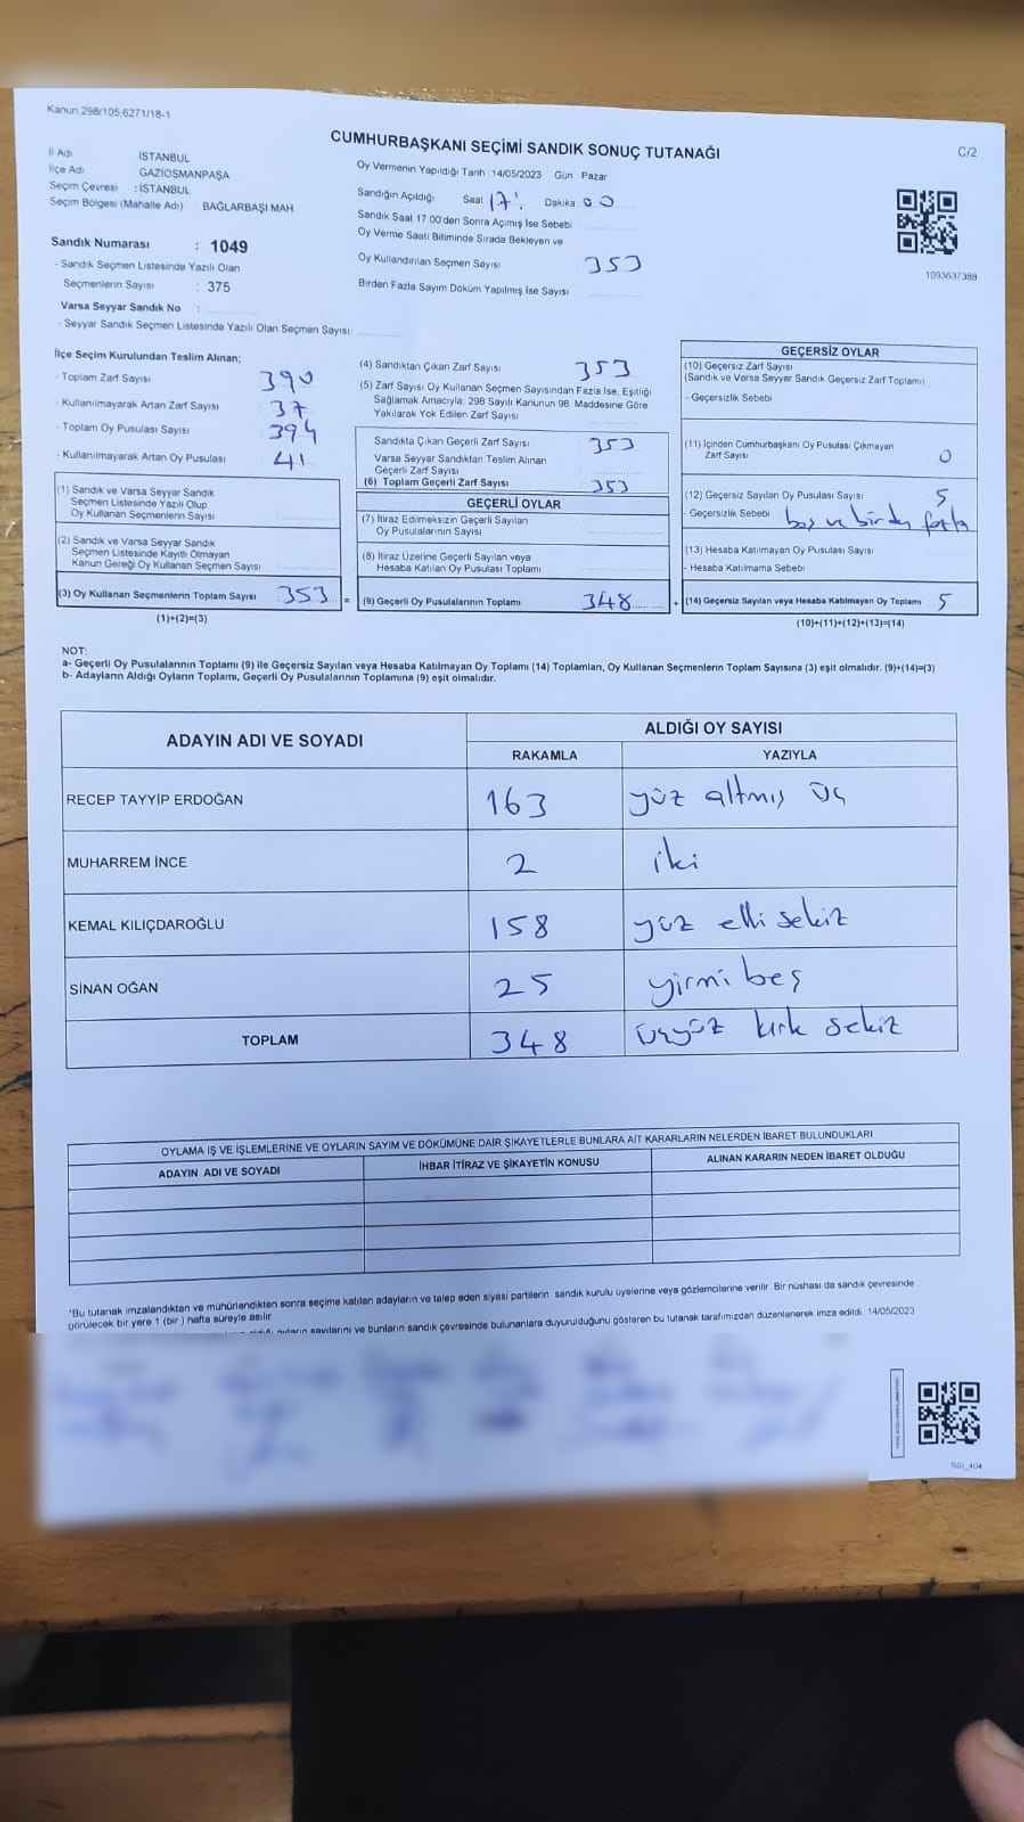 Kanun 298/105,6271/18-1
CUMHURBAŞKANI SEÇİMİ SANDIK SONUÇ TUTANAĞI
C/2
İl Adı İSTANBUL
İlçe Adı GAZİOSMANPAŞA
Seçim Çevresi : İSTANBUL
Seçim Bölgesi (Mahalle Adı) BAĞLARBAŞI MAH
Oy Vermenin Yapıldığı Tarih 14/05/2023 Gün Pazar
Sandığın Açıldığı Saat 17 Dakika 00
Sandık Saat 17:00'den Sonra Açılmış İse Sebebi
Oy Verme Saati Bitiminde Sırada Bekleyen ve
Oy Kullandırılan Seçmen Sayısı 353
Birden Fazla Sayım Döküm Yapılmış İse Sayısı
1093637388
Sandık Numarası : 1049
- Sandık Seçmen Listesinde Yazılı Olan
Seçmenlerin Sayısı : 375
Varsa Seyyar Sandık No :
- Seyyar Sandık Seçmen Listesinde Yazılı Olan Seçmen Sayısı:
İlçe Seçim Kurulundan Teslim Alınan;
- Toplam Zarf Sayısı 390
- Kullanılmayarak Artan Zarf Sayısı 37
- Toplam Oy Pusulası Sayısı 394
- Kullanılmayarak Artan Oy Pusulası 41
(1) Sandık ve Varsa Seyyar Sandık
Seçmen Listesinde Yazılı Olup
Oy Kullanan Seçmenlerin Sayısı
(2) Sandık ve Varsa Seyyar Sandık
Seçmen Listesinde Kayıtlı Olmayan
Kanun Gereği Oy Kullanan Seçmen Sayısı
(3) Oy Kullanan Seçmenlerin Toplam Sayısı 353 =
(1)+(2)=(3)
(4) Sandıktan Çıkan Zarf Sayısı 353
(5) Zarf Sayısı Oy Kullanan Seçmen Sayısından Fazla İse, Eşitliği
Sağlamak Amacıyla; 298 Sayılı Kanunun 98. Maddesine Göre
Yakılarak Yok Edilen Zarf Sayısı
Sandıkta Çıkan Geçerli Zarf Sayısı 353
Varsa Seyyar Sandıktan Teslim Alınan
Geçerli Zarf Sayısı
(6) Toplam Geçerli Zarf Sayısı 353
GEÇERLİ OYLAR
(7) İtiraz Edilmeksizin Geçerli Sayılan
Oy Pusulalarının Sayısı
(8) İtiraz Üzerine Geçerli Sayılan veya
Hesaba Katılan Oy Pusulası Toplamı
(9) Geçerli Oy Pusulalarının Toplamı 348 +
GEÇERSİZ OYLAR
(10) Geçersiz Zarf Sayısı
(Sandık ve Varsa Seyyar Sandık Geçersiz Zarf Toplamı)
- Geçersizlik Sebebi
(11) İçinden Cumhurbaşkanı Oy Pusulası Çıkmayan
Zarf Sayısı 0
(12) Geçersiz Sayılan Oy Pusulası Sayısı 5
- Geçersizlik Sebebi boş ve birden fazla
(13) Hesaba Katılmayan Oy Pusulası Sayısı
- Hesaba Katılmama Sebebi
(14) Geçersiz Sayılan veya Hesaba Katılmayan Oy Toplamı 5
(10)+(11)+(12)+(13)=(14)
NOT:
a- Geçerli Oy Pusulalarının Toplamı (9) ile Geçersiz Sayılan veya Hesaba Katılmayan Oy Toplamı (14) Toplamları, Oy Kullanan Seçmenlerin Toplam Sayısına (3) eşit olmalıdır. (9)+(14)=(3)
b- Adayların Aldığı Oyların Toplamı, Geçerli Oy Pusulalarının Toplamına (9) eşit olmalıdır.
ADAYIN ADI VE SOYADI ALDIĞI OY SAYISI
RAKAMLA YAZIYLA
RECEP TAYYİP ERDOĞAN 163 yüz altmış üç
MUHARREM İNCE 2 iki
KEMAL KILIÇDAROĞLU 158 yüz elli sekiz
SİNAN OĞAN 25 yirmi beş
TOPLAM 348 üçyüz kırk sekiz
OYLAMA İŞ VE İŞLEMLERİNE VE OYLARIN SAYIM VE DÖKÜMÜNE DAİR ŞİKAYETLERLE BUNLARA AİT KARARLARIN NELERDEN İBARET BULUNDUKLARI
ADAYIN ADI VE SOYADI İHBAR İTİRAZ VE ŞİKAYETİN KONUSU ALINAN KARARIN NEDEN İBARET OLDUĞU
*Bu tutanak imzalandıktan ve mühürlendikten sonra seçime katılan adayların ve talep eden siyasi partilerin sandık kurulu üyelerine veya gözlemcilerine verilir. Bir nüshası da sandık çevresinde
görülecek bir yere 1 (bir ) hafta süreyle asılır
sayılarını ve bunların sandık çevresinde bulunanlara duyurulduğunu gösteren bu tutanak tarafımızdan düzenlenerek imza edildi. 14/05/2023